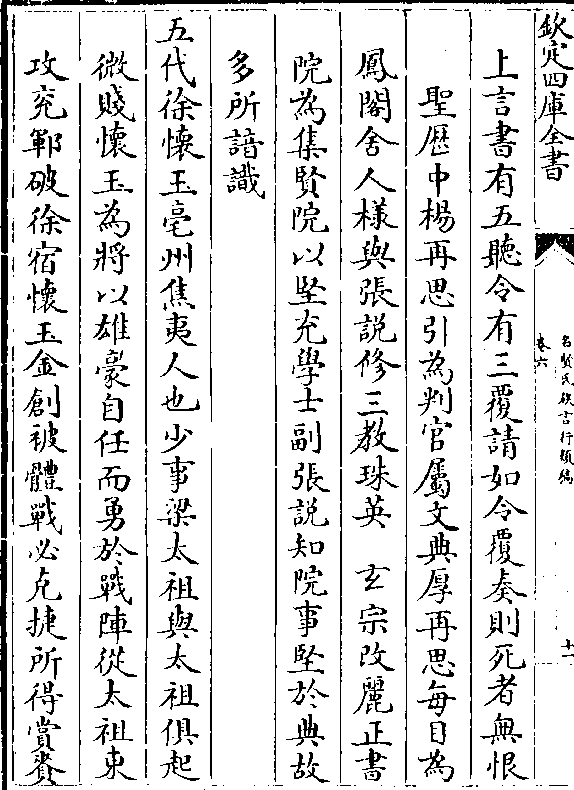 欽定四庫全書
名賢氏族言行類稿
卷六
十一
上言書有五聽令有三覆請如令覆奏則死者無恨
聖歴中楊再思引為判官屬文典厚再思每目為
鳳閣舍人様與張説修三教珠英　玄宗改麗正書
院為集賢院以堅充學士副張説知院事堅於典故
多所諳識
五代徐懷玉亳州焦夷人也少事梁太祖與太祖俱起
微賤懷玉為將以雄豪自任而勇於戰陣從太祖東
攻兖鄆破徐宿懷玉金創被體戰必克捷所得賞賚